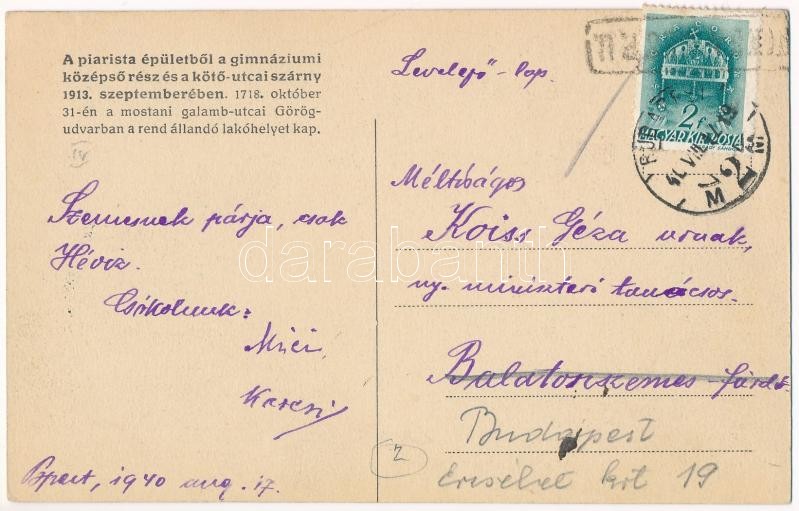 A piarista épületből a gimnáziumi
középső rész és a kötő-utcai szárny
1913. szeptemberében. 1718. október
31-én a mostani galamb-utcai Görög-
udvarban a rend állandó lakóhelyet kap.
Levelező-lap.
2f
MAGYAR KIR. POSTA
Szemesnek párja, csak
Héviz.
Csókolunk:
Mici,
Karcsi
Bpest, 1940 aug. 17.
Méltóságos
Koiss Géza urnak,
ny. miniszteri tanácsos.
Balatonszemes-fürdő
Budapest
Erzsébet krt 19
2
IV
darabanth